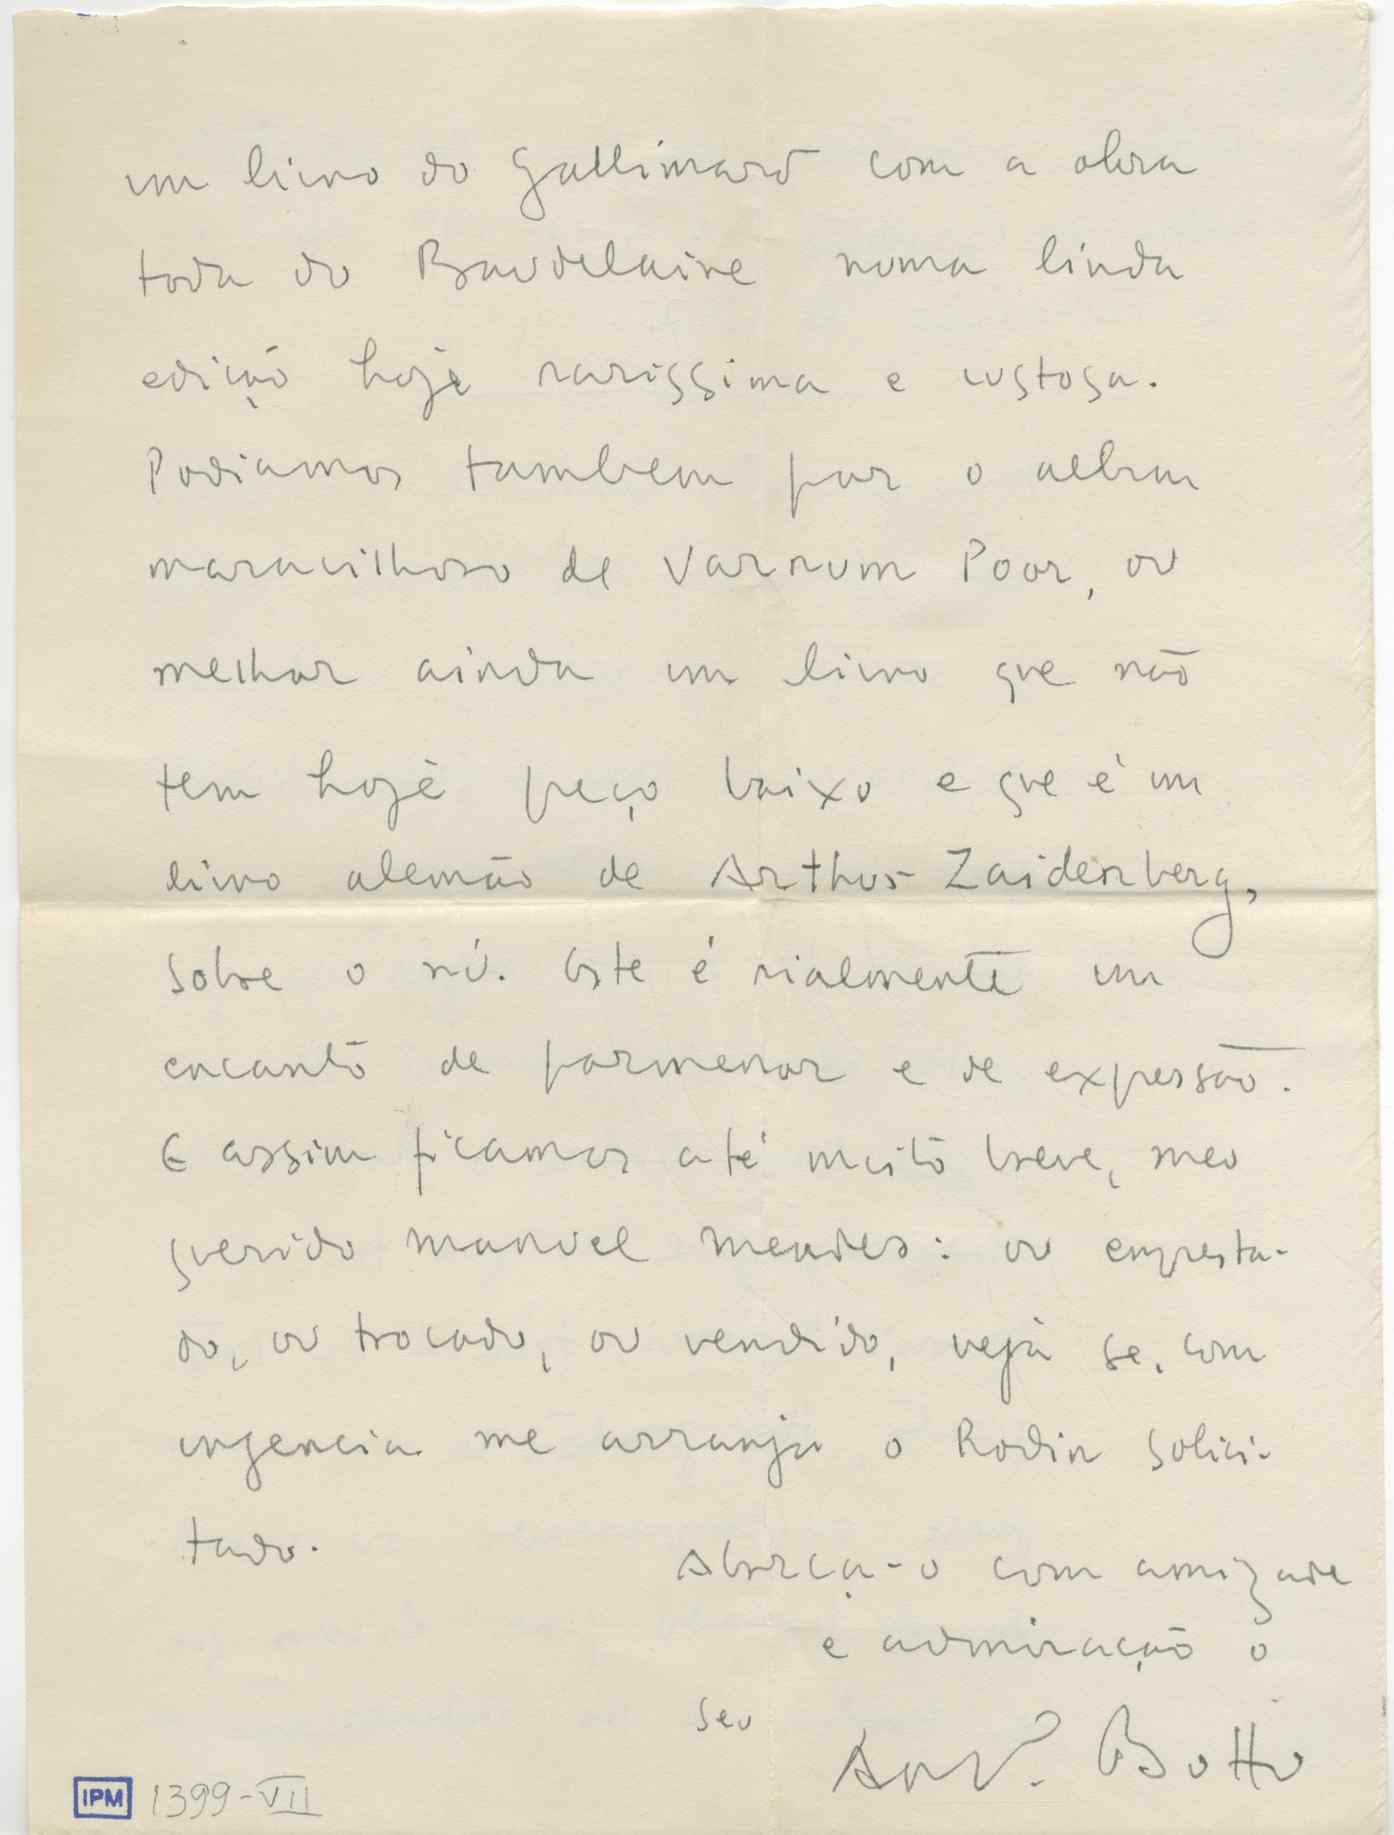 um livro do Gallimard com a obra
toda do Baudelaire numa linda
edição hoje rarissima e custosa.
Podiamos tambem por o album
maravilhoso de Varnum Poor, ou
melhor ainda um livro que não
tem hoje preço baixo e que é um
livro alemão de Arthur Zaidenberg,
sobre o nú. Este é rialmente um
encanto de pormenor e de expressão.
E assim ficamos até muito breve, meu
querido Manuel Mendes: ou empresta-
do, ou trocado, ou vendido, veja se, com
urgencia me arranja o Rodin solici-
tado.
Abraça-o com amizade
e admiração o
seu
Antº. Botto
IPM 1399-VII